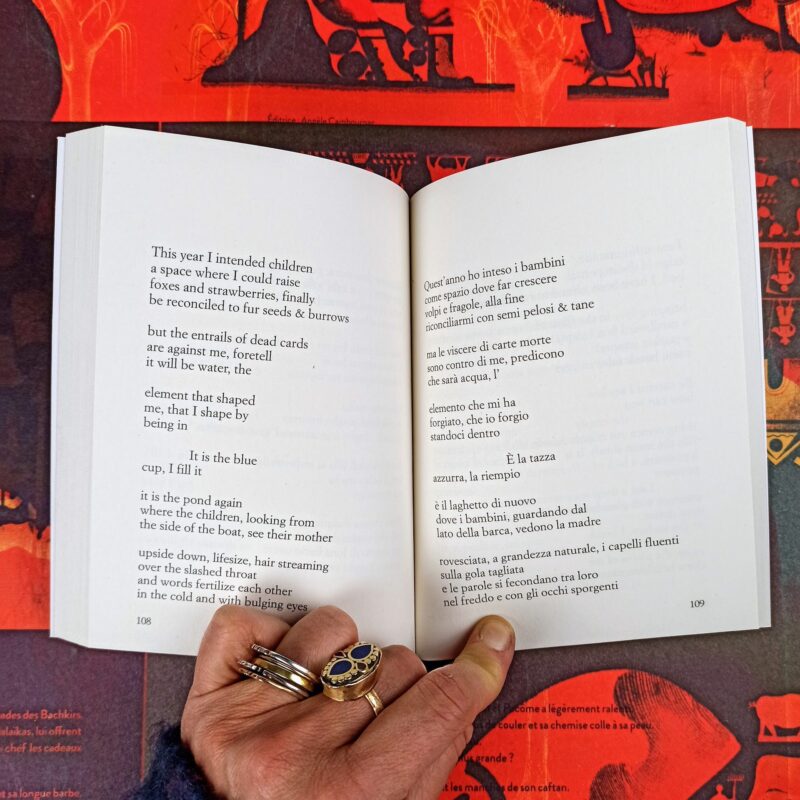 Éditrice : Angèle Cambournac
This year I intended children
a space where I could raise
foxes and strawberries, finally
be reconciled to fur seeds & burrows
but the entrails of dead cards
are against me, foretell
it will be water, the
element that shaped
me, that I shape by
being in
It is the blue
cup, I fill it
it is the pond again
where the children, looking from
the side of the boat, see their mother
upside down, lifesize, hair streaming
over the slashed throat
and words fertilize each other
in the cold and with bulging eyes
108
Quest'anno ho inteso i bambini
come spazio dove far crescere
volpi e fragole, alla fine
riconciliarmi con semi pelosi & tane
ma le viscere di carte morte
sono contro di me, predicono
che sarà acqua, l'
elemento che mi ha
forgiato, che io forgio
standoci dentro
È la tazza
azzurra, la riempio
è il laghetto di nuovo
dove i bambini, guardando dal
lato della barca, vedono la madre
rovesciata, a grandezza naturale, i capelli fluenti
sulla gola tagliata
e le parole si fecondano tra loro
nel freddo e con gli occhi sporgenti
109
ades des Bachkirs.
alaikas, lui offrent
chef les cadeaux
et sa longue barbe.
Pacome a légèrement ralenti
de couler et sa chemise colle à sa peau.
us grande ?
les manches de son caftan.